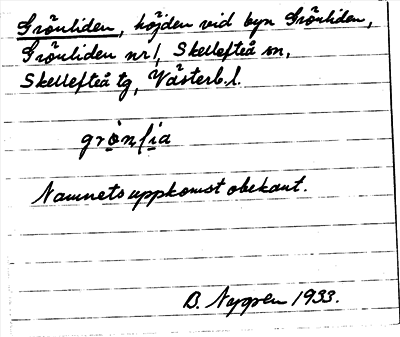 Grönliden, höjden vid byn Grönliden,
Grönliden nr 1, Skellefteå sn,
Skellefteå tg, Västerb.l.
Namnets uppkomst obekant.
B. Nygren 1933.